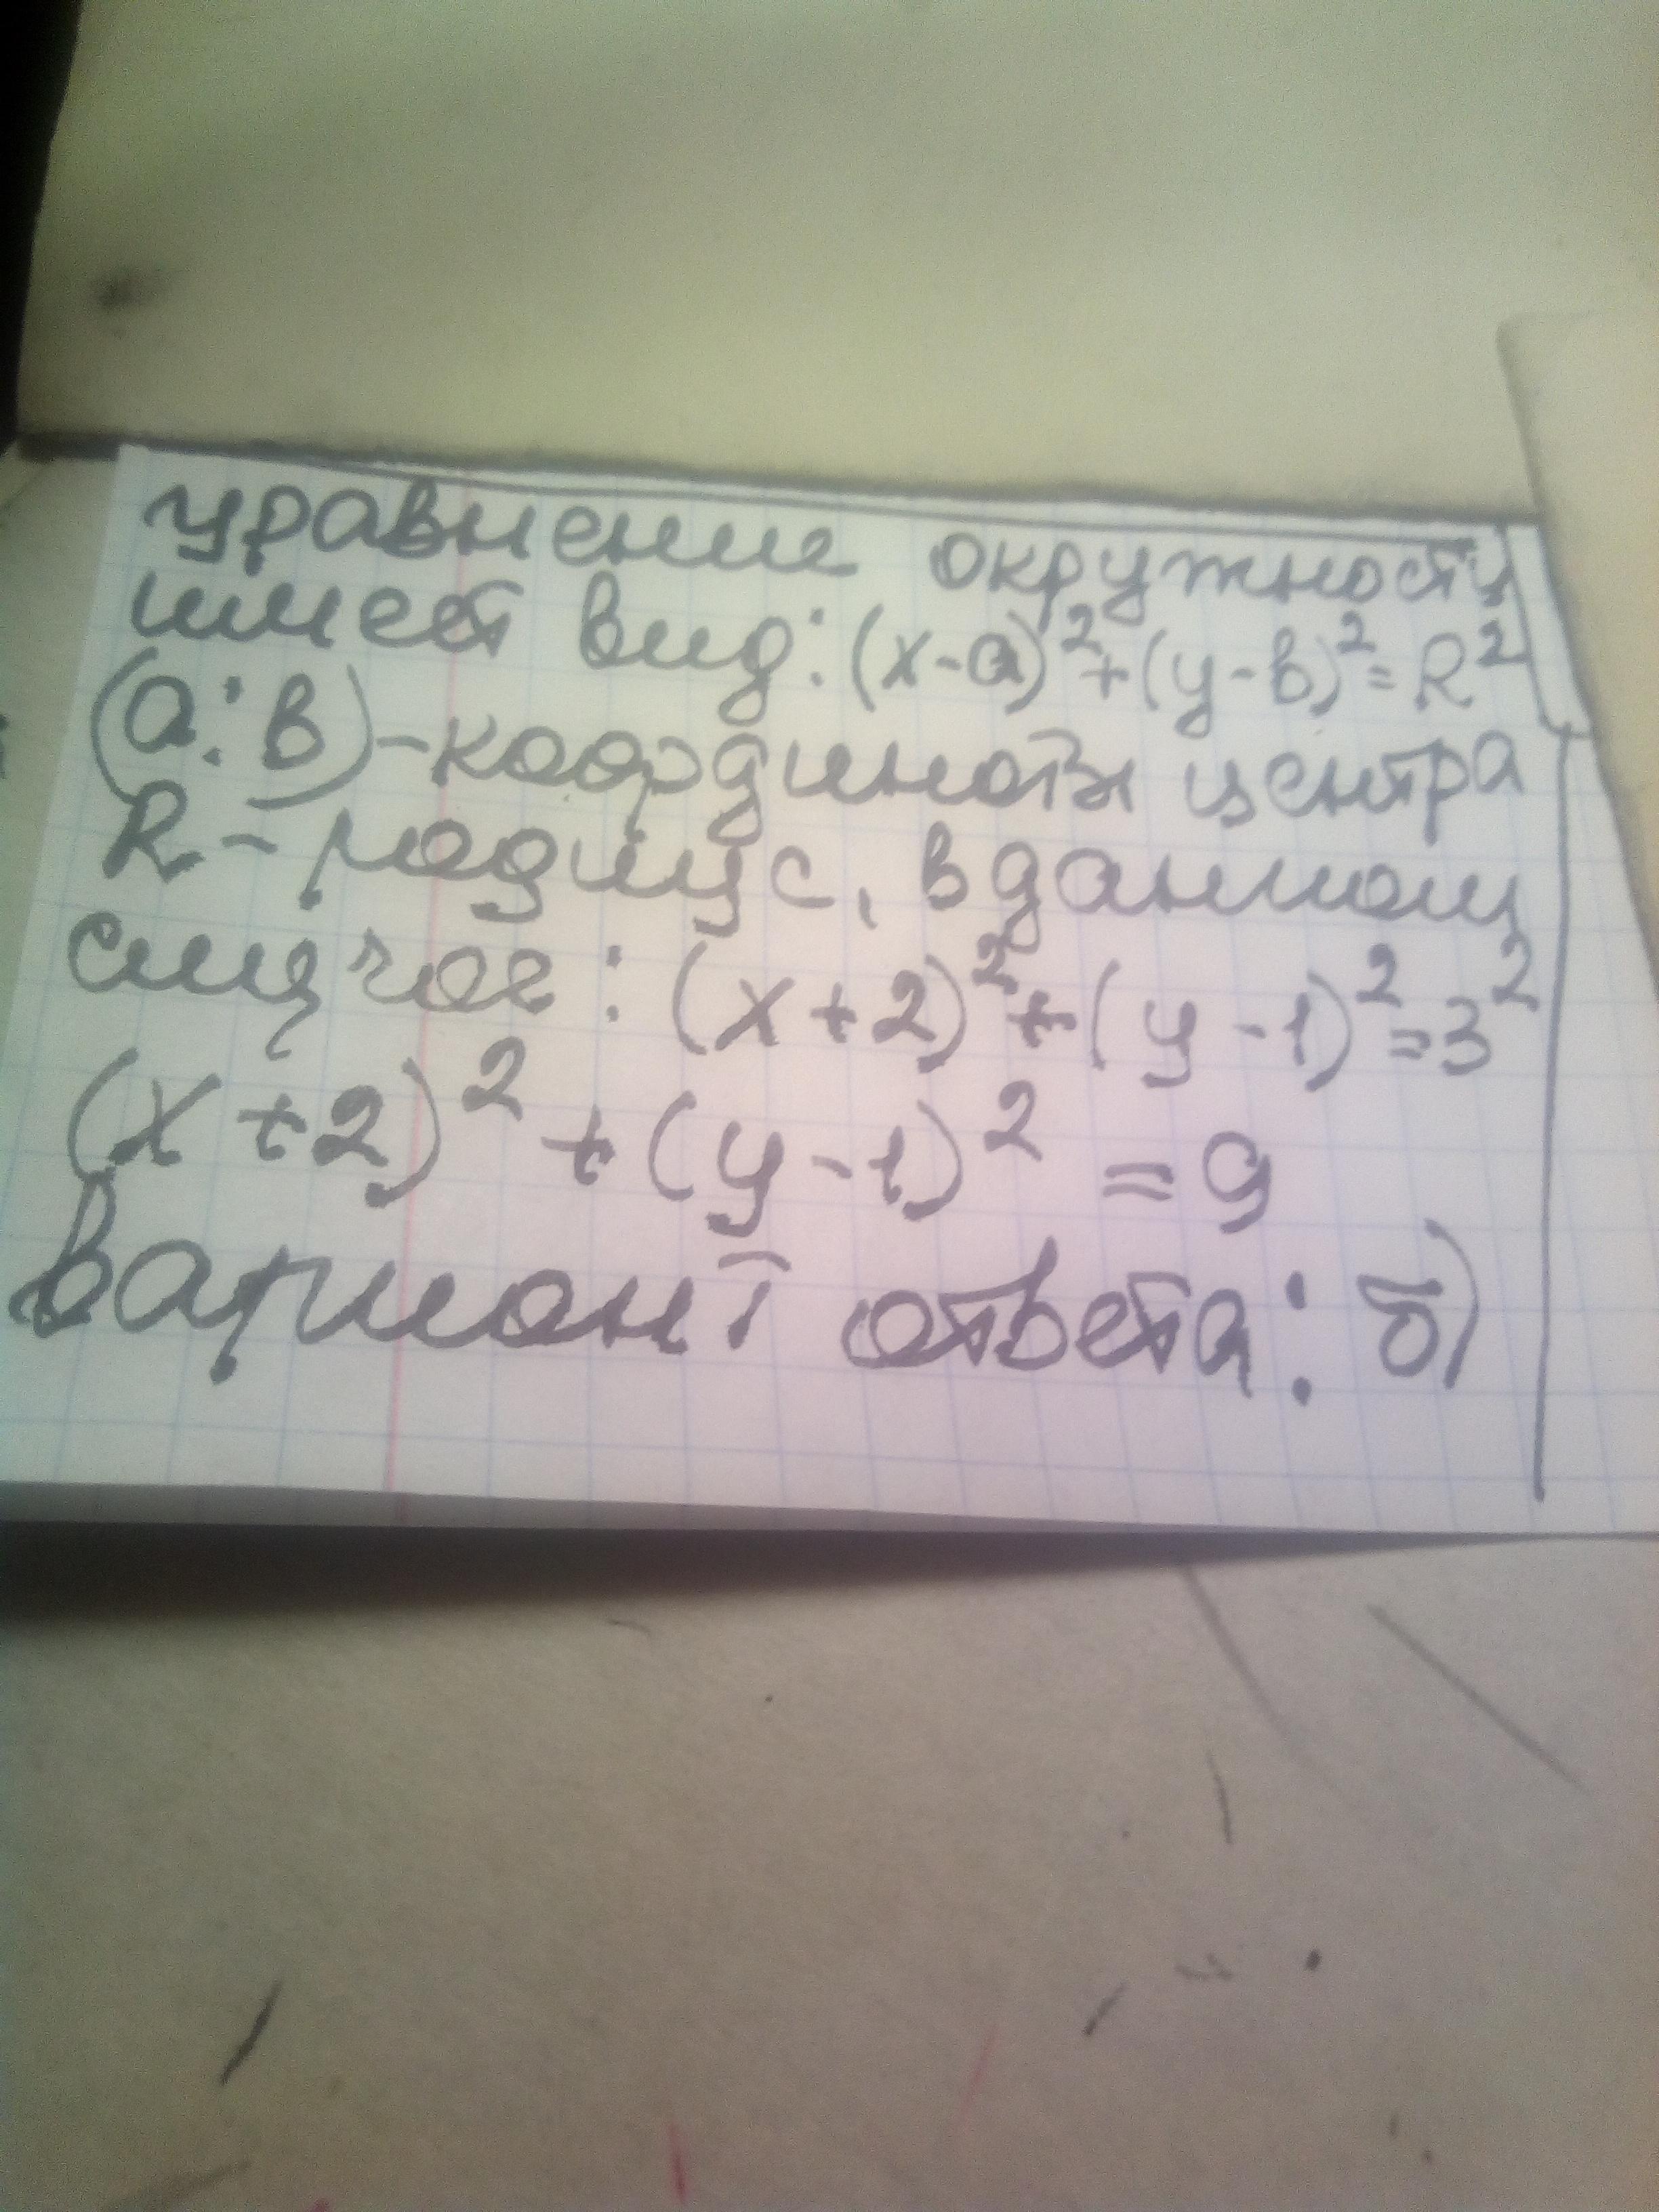 уравнение окружности
имеет вид: (x-a)²+(y-b)²=R²
(a; b)-координаты центра
R-радиус, в данном
случае: (x+2)²+(y-1)²=3²
(x+2)²+(y-1)²=9
вариант ответа: б)